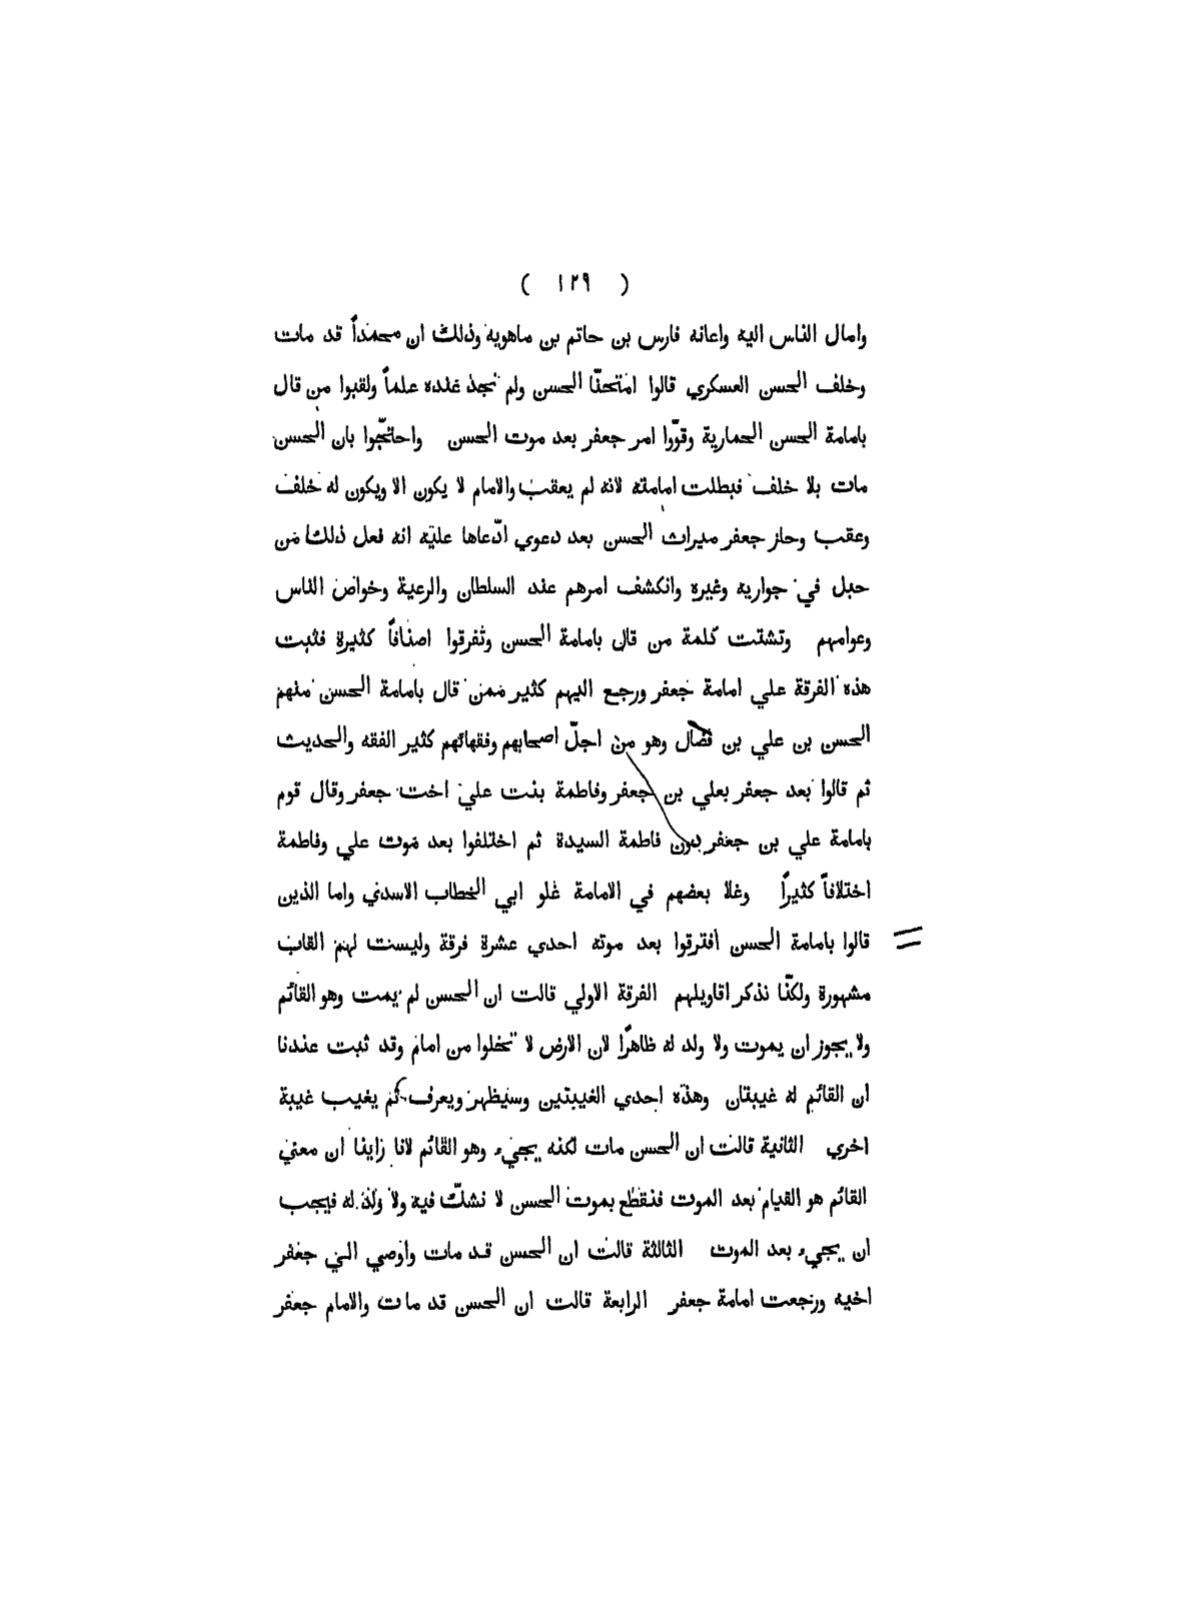 ( ١٢٩ )
وامال الناس اليه واعانه فارس بن حاتم بن ماهويه وذلك ان محمداً قد مات
وخلف الحسن العسكري قالوا امتحنّا الحسن ولم نجد عنده علماً ولقبوا من قال
بامامة الحسن الحمارية وقوّوا امر جعفر بعد موت الحسن واحتجّوا بان الحسن
مات بلا خلف فبطلت امامته لانه لم يعقب والامام لا يكون الا ويكون له خلف
وعقب وحاز جعفر ميراث الحسن بعد دعوي ادّعاها عليه انه فعل ذلك من
حبل في جواريه وغيره وانكشف امرهم عند السلطان والرعية وخواص الناس
وعوامهم وتشتت كلمة من قال بامامة الحسن وتفرقوا اصنافاً كثيرة فثبت
هذه الفرقة علي امامة جعفر ورجع اليهم كثير ممن قال بامامة الحسن منهم
الحسن بن علي بن فضال وهو من اجلّ اصحابهم وفقهائهم كثير الفقه والحديث
ثم قالوا بعد جعفر بعلي بن جعفر وفاطمة بنت علي اخت جعفر وقال قوم
بامامة علي بن جعفر دون فاطمة السيدة ثم اختلفوا بعد موت علي وفاطمة
اختلافاً كثيراً وغلا بعضهم في الامامة غلو ابي الخطاب الاسدي واما الذين
قالوا بامامة الحسن افترقوا بعد موته احدي عشرة فرقة وليست لهم القاب
مشهورة ولكنّا نذكر اقاويلهم الفرقة الاولي قالت ان الحسن لم يمت وهو القائم
ولا يجوز ان يموت ولا ولد له ظاهراً لان الارض لا تخلوا من امام وقد ثبت عندنا
ان القائم له غيبتان وهذه احدي الغيبتين وسيظهر ويعرف ثم يغيب غيبة
اخري الثانية قالت ان الحسن مات لكنه يجيء وهو القائم لانا راينا ان معني
القائم هو القيام بعد الموت فنقطع بموت الحسن لا نشكّ فيه ولا ولد له فيجب
ان يجيء بعد الموت الثالثة قالت ان الحسن قد مات واوصي الي جعفر
اخيه ورجعت امامة جعفر الرابعة قالت ان الحسن قد مات والامام جعفر